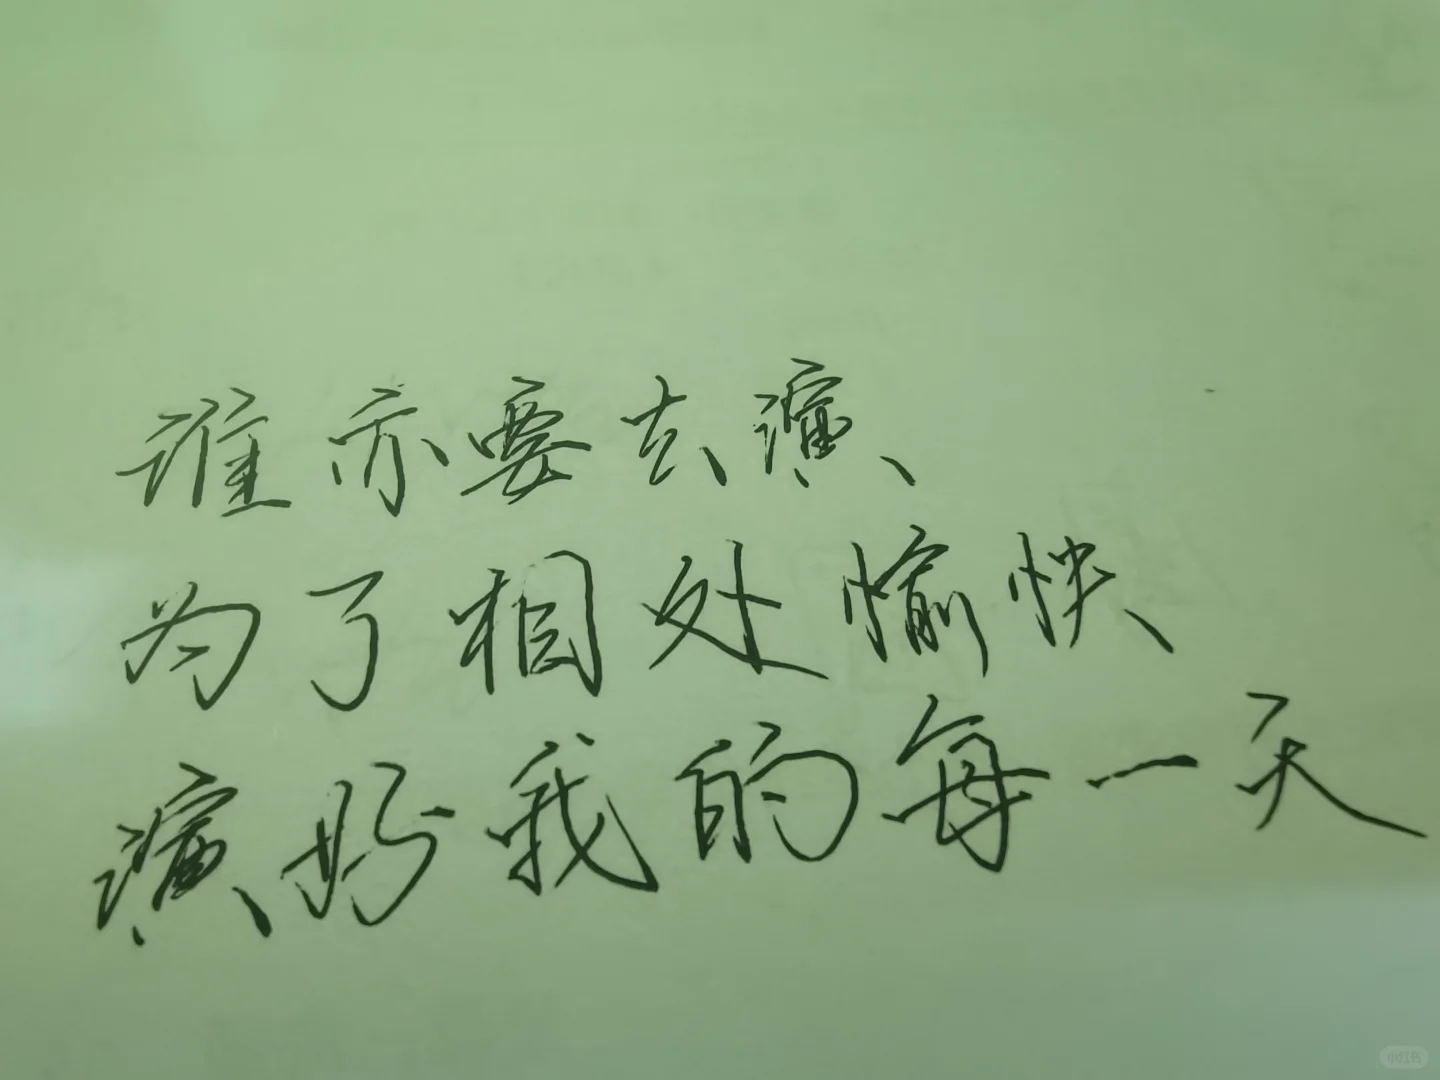 谁亦要去演
为了相处愉快
演好我的每一天
小红书